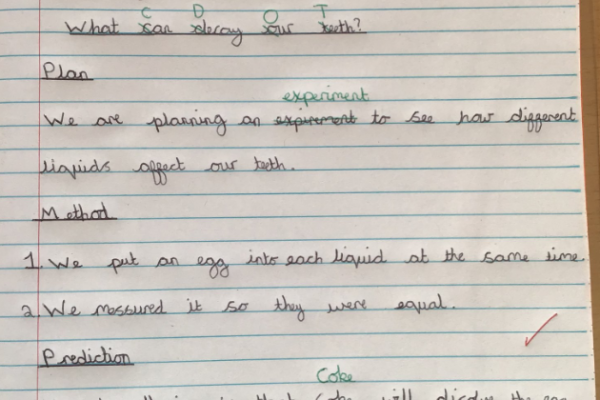 C D O T
What can decay our teeth?
Plan
experiment
We are planning an expirement to see how different
liquids affect our teeth.
Method
1. We put an egg into each liquid at the same time.
2. We messured it so they were equal.
Prediction
Coke
is that Coke will the